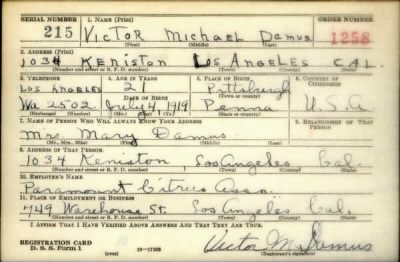 SERIAL NUMBER 1. NAME (Print) ORDER NUMBER
215 Victor Michael Damus 1258
(First) (Middle) (Last)
2. ADDRESS (Print)
1034 Keniston Los Angeles Cal.
(Number and street or R. F. D. number) (Town) (County) (State)
3. TELEPHONE 4. AGE IN YEARS 5. PLACE OF BIRTH 6. COUNTRY OF CITIZENSHIP
Los Angeles 21 Pittsburgh
DATE OF BIRTH (Town or county)
Wa 2502 July 4 1919 Penna U.S.A
(Exchange) (Number) (Mo.) (Day) (Yr.) (State or country)
7. NAME OF PERSON WHO WILL ALWAYS KNOW YOUR ADDRESS 8. RELATIONSHIP OF THAT PERSON
Mrs Mary Damus
(Mr., Mrs., Miss) (First) (Middle) (Last)
9. ADDRESS OF THAT PERSON
1034 Keniston, Los Angeles Cal.
(Number and street or R. F. D. number) (Town) (County) (State)
10. EMPLOYER'S NAME
Paramount Citrus Asso.
11. PLACE OF EMPLOYMENT OR BUSINESS
749 Warehouse St. Los Angeles Cal.
(Number and street or R. F. D. number) (Town) (County) (State)
I AFFIRM THAT I HAVE VERIFIED ABOVE ANSWERS AND THAT THEY ARE TRUE.
REGISTRATION CARD
D. S. S. Form 1 (over) Victor M. Damus
(Registrant's signature)